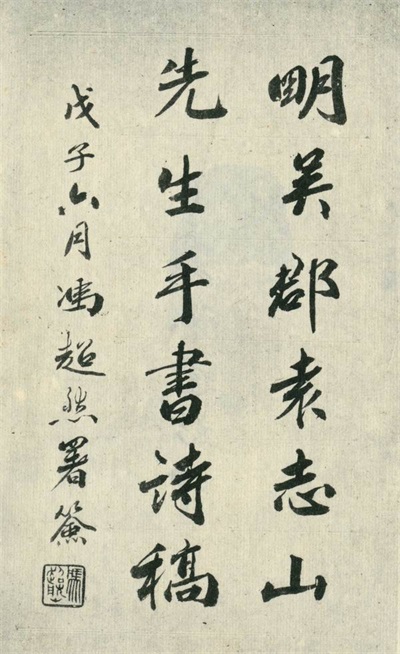 明吴郡袁志山
先生手書詩稿
戊子六月馮超然署簽